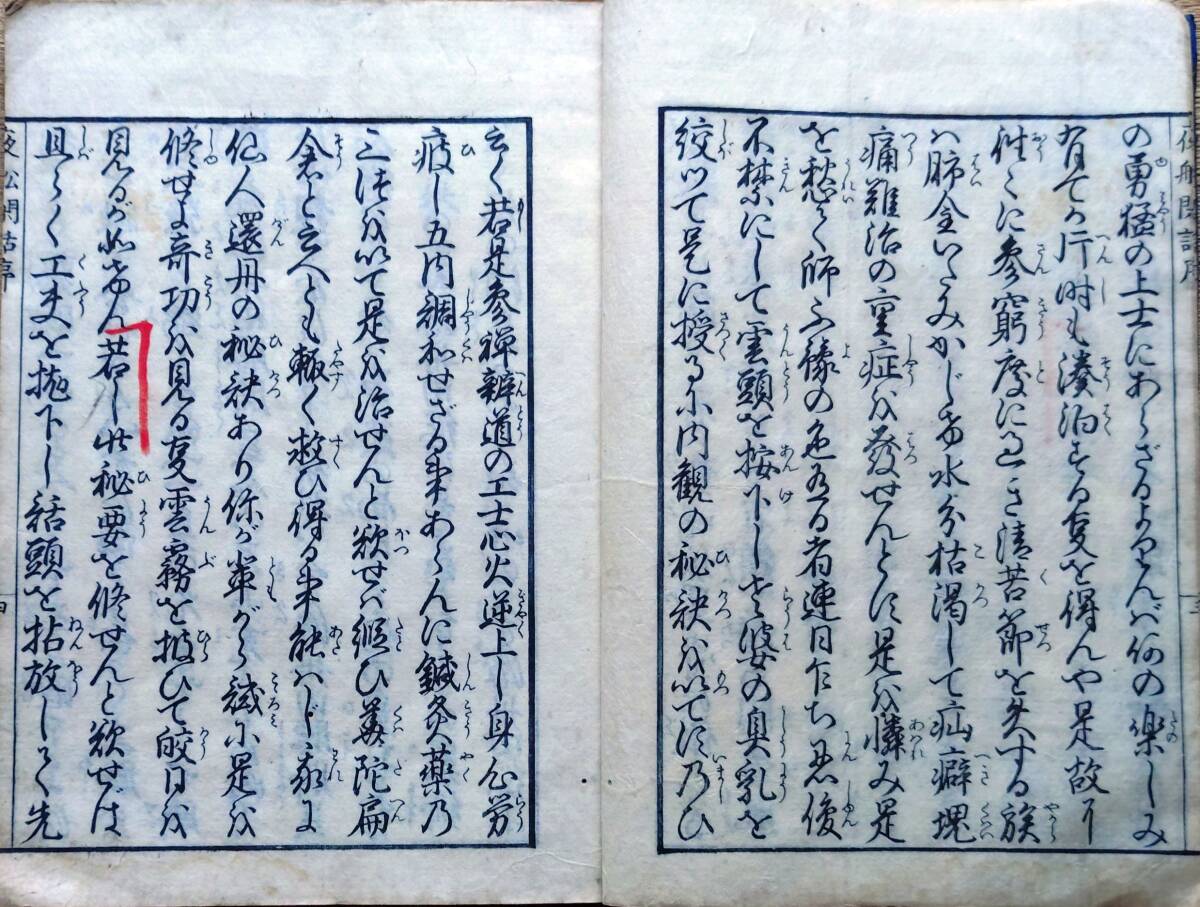 夜舩閑話序
の勇猛の上士にあらざるよりんば何の楽しみ
有てか片時も湊泊する叓を得んや是故に
往々に參窮度に過き清苦節を失する族
ハ肺金いたみかじけ水分枯渇して疝癖塊
痛難治の重症を發せんとす是を憐み是
を愁て師不豫の色ある者連日乍ち忍俊
不禁にして雲頭を按下し老婆の臭乳を
絞つて是に授るに内觀の秘訣を以てす乃ひ
云く若是參禅辨道の上士心火逆上し身心労
疲し五内調和せざる事あらんに鍼灸藥乃
三つを以て是を治せんと欲せば縦ひ華陀扁
倉と云へとも輙く救ひ得る事能ハじ我に
仙人還丹の秘訣あり你が輩がら試に是を
修せよ奇功を見る叓雲霧を披ひて皎日を
見るが如けん若し此秘要を修せんと欲せば
且らく工夫を抛下し話頭を拈放して先
夜舩閑話序
四